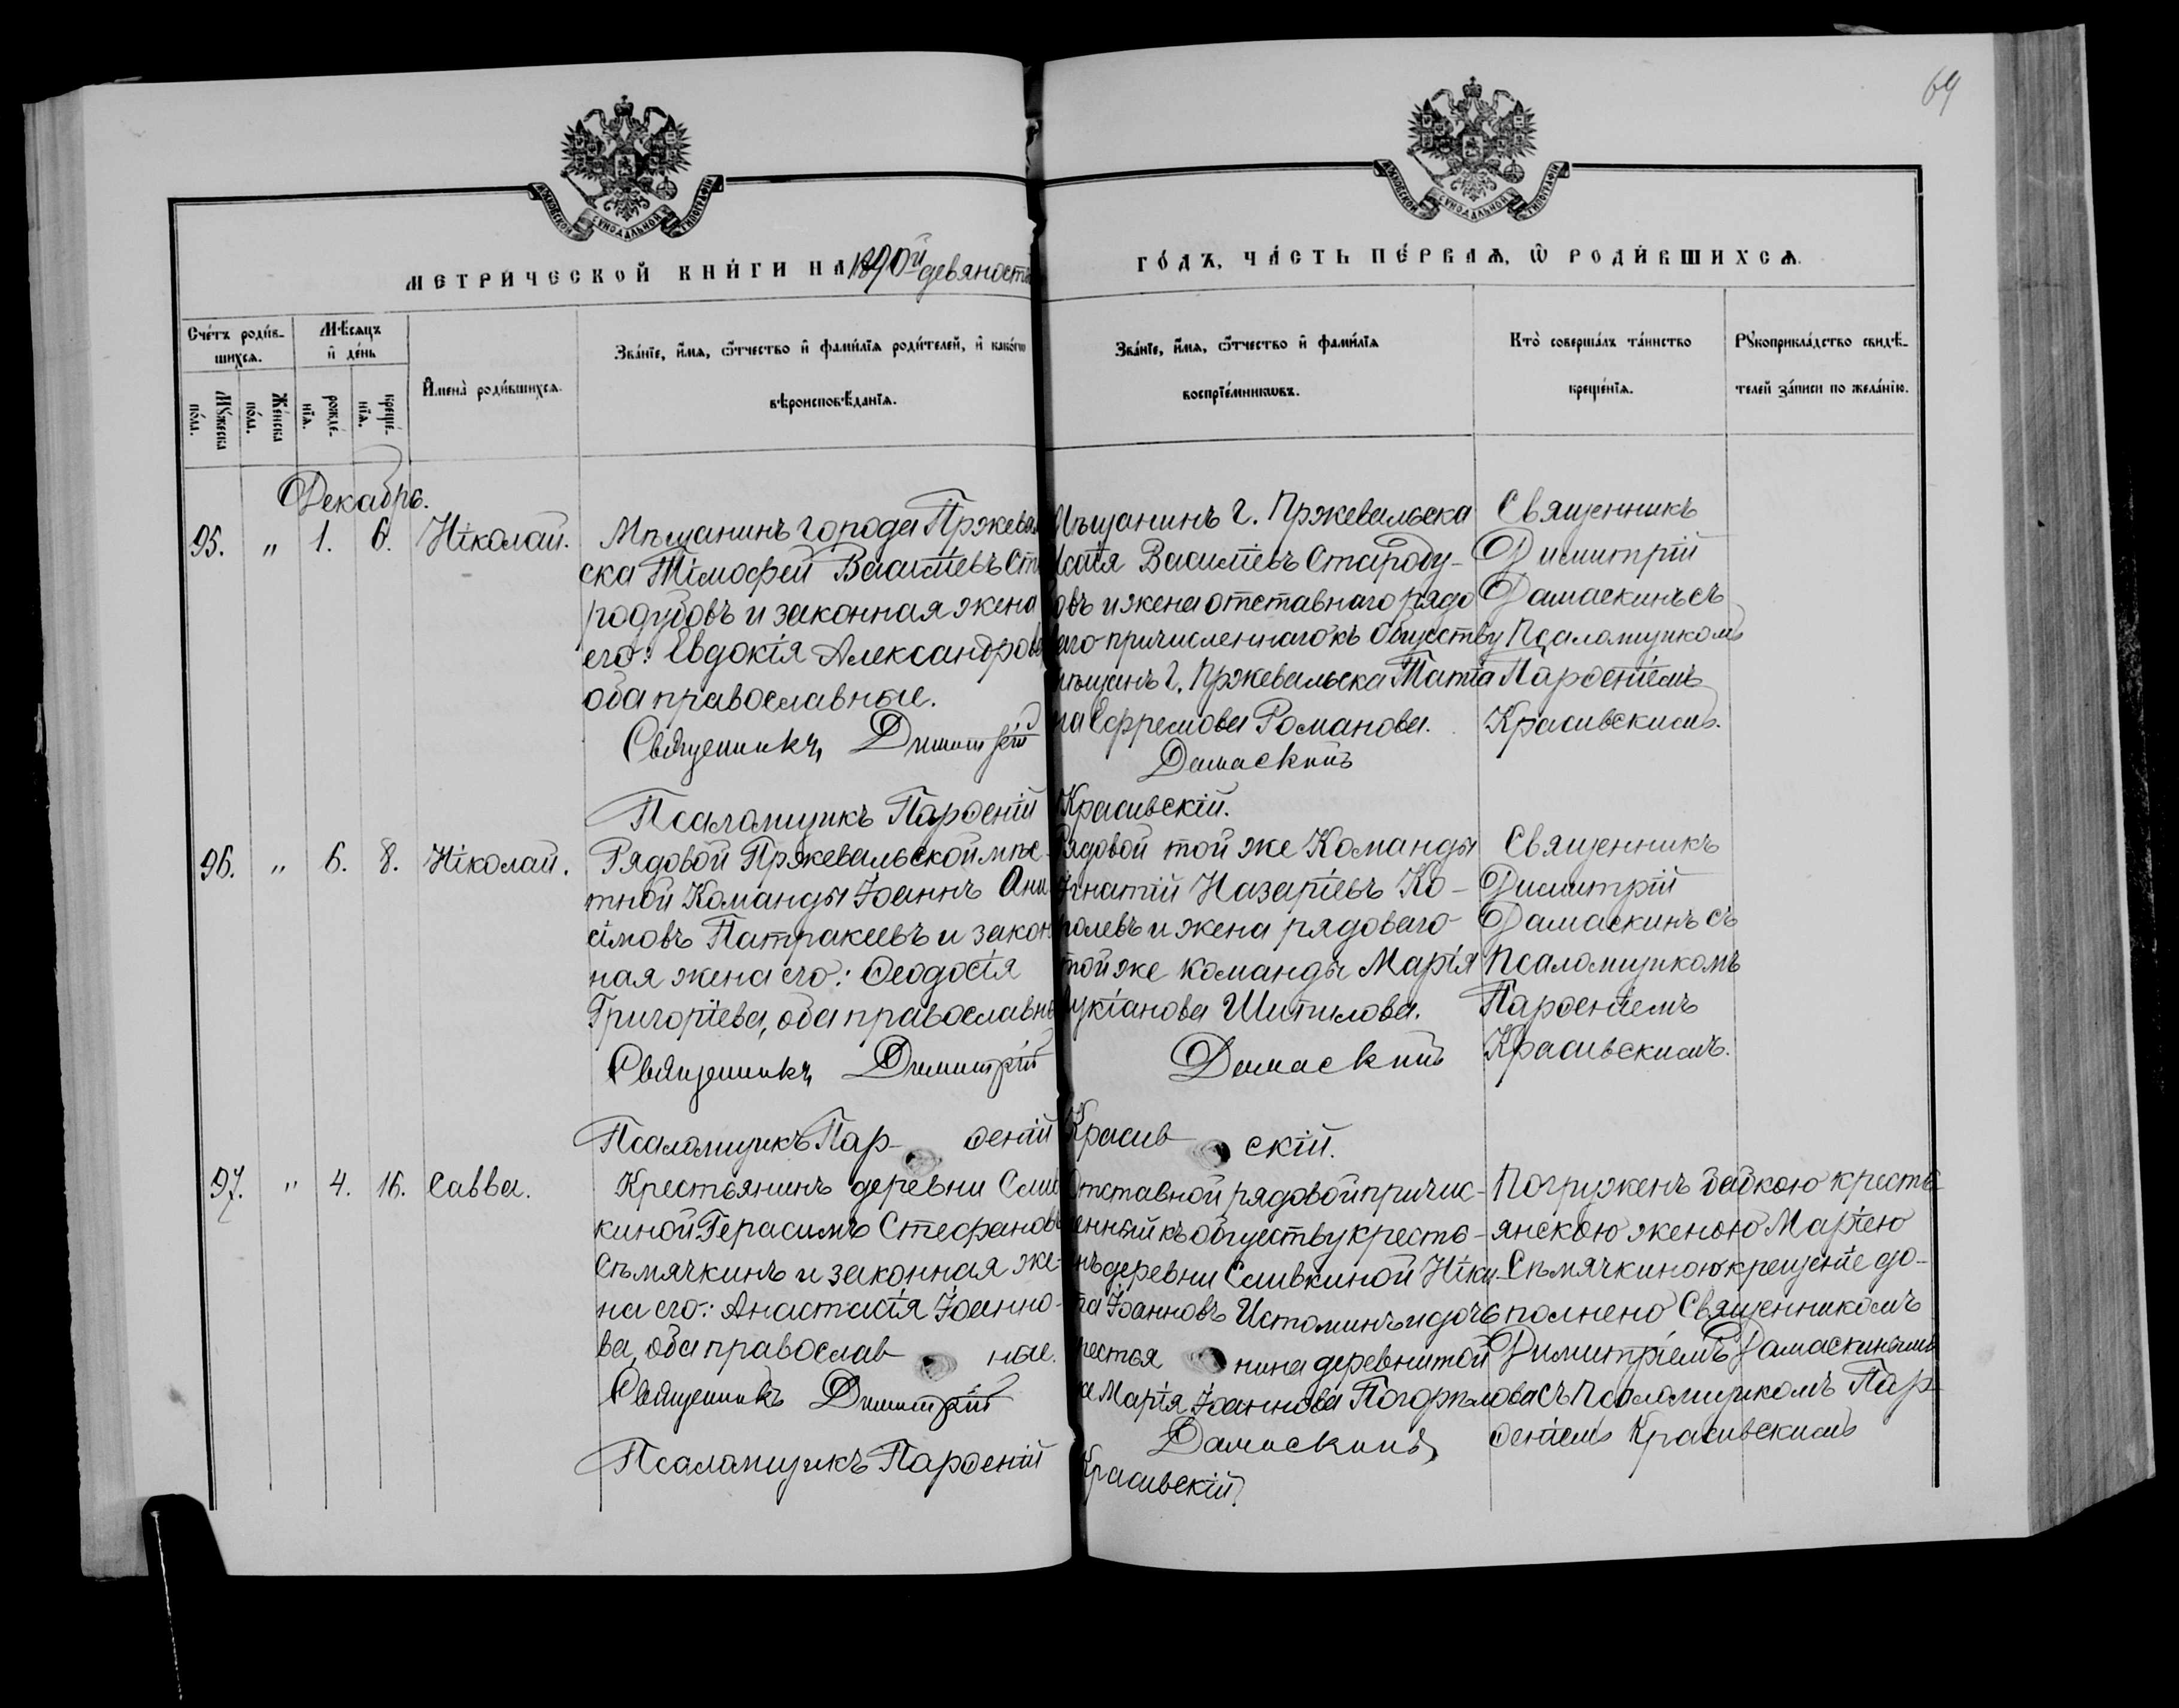 69
МОСКОВСКОЙ СѴНОДАЛЬНОЙ ТИПОГРАФІИ
МОСКОВСКОЙ СѴНОДАЛЬНОЙ ТИПОГРАФІИ
МЕТРИ́ЧЕСКОЙ КНИ́ГИ НА 1890й девяност
ГО́ДЪ, ЧА́СТЬ ПЕ́РВАѦ, Ѡ҆ РОДИ́ВШИХСѦ.
Сче́тъ роди́в-
шихсѧ.
Мѣ́сѧцъ
и҆ де́нь
Мꙋ́жеска
по́ла.
Же́нска
по́ла.
рожде́-
нїѧ.
креще́-
нїѧ.
И҆мена̀ роди́вшихсѧ.
Зва́нїе, и҆́мѧ, ѻ҆́тчество и҆ фами́лїѧ роди́телей, и҆ како́гѡ
вѣроисповѣ́данїѧ.
Зва́нїе, и҆́мѧ, ѻ҆́тчество и҆ фами́лїѧ
воспрїе́мникѡвъ.
Кто̀ соверша́лъ та́инство
креще́нїѧ.
Рꙋкоприкла́дство свидѣ́-
телей за́писи по жела́нїю.
Декабрь.
95. " 1. 6. Ніколай.
Мѣщанинъ города Пржевал
ска Тімофей Васілiевъ Ста
родубовъ и законная жена
его: Евдокія Александров
оба православные.
Священникъ Димитрій
Псаломщикъ Парѳеній
Мѣщанинъ г. Пржевальска
Исаія Василіевъ Староду-
овъ и жена отставнаго рядо
аго причисленнаго къ обществу
мѣщанъ г. Пржевальска Татіа
на Ефремова Романова.
Дамаскинъ
Красивскій.
Священникъ
Димитрій
Дамаскинъ съ
Псаломщикомъ
Парѳеніемъ
Красивскимъ.
96. " 6. 8. Ніколай.
Рядовой Пржевальской мѣс-
тной Команды Іоаннъ Они
сімовъ Патракеевъ и закон
ная жена его: Ѳеодосія
Григоріева, оба православны
Священникъ Димитрій
Псаломщикъ Пар- ѳеній
Рядовой той же Команды
Игнатій Назаріевъ Ко-
ролевъ и жена рядоваго
той же команды Марія
укіанова Шипилова.
Дамаскинъ
Красив- скій.
Священникъ
Димитрій
Дамаскинъ съ
Псаломщикомъ
Парѳеніемъ
Красивскимъ.
97. " 4. 16. Савва.
Крестьянинъ деревни Слив
киной Герасимъ Стефановъ
Сѣмячкинъ и законная же-
на его: Анастасія Іоанно-
ва, оба православ ные.
Священникъ Димитрій
Псаломщикъ Парѳеній
Отставной рядовой причис-
енный къ обществу кресть-
нъ деревни Сливкиной Ники-
та Іоанновъ Истоминъ и дочь
рестья нина деревни той
же Марія Іоаннова Погорѣлова
Дамаскинъ
Красивскій.
Погруженъ бабкою кресть-
янскою женою Маріею
Сѣмячкиною крещеніе до-
полнено Священникомъ
Димитріемъ Дамаскинымъ
съ Псаломщикомъ Пар-
ѳеніемъ Красивскимъ